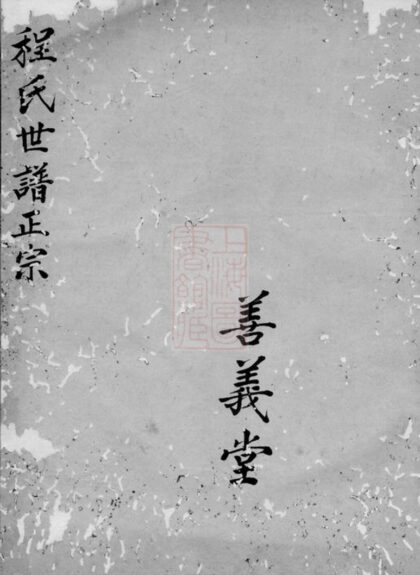 程氏世譜正宗
善義堂
上海圖
書館藏